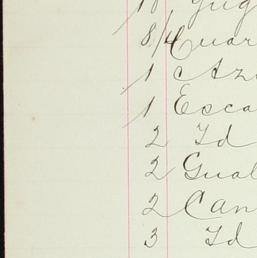 10 Gug
8/4 Cuar
1 Az
1 Esca
2 Id
2 Gual
2 Can
3 Id